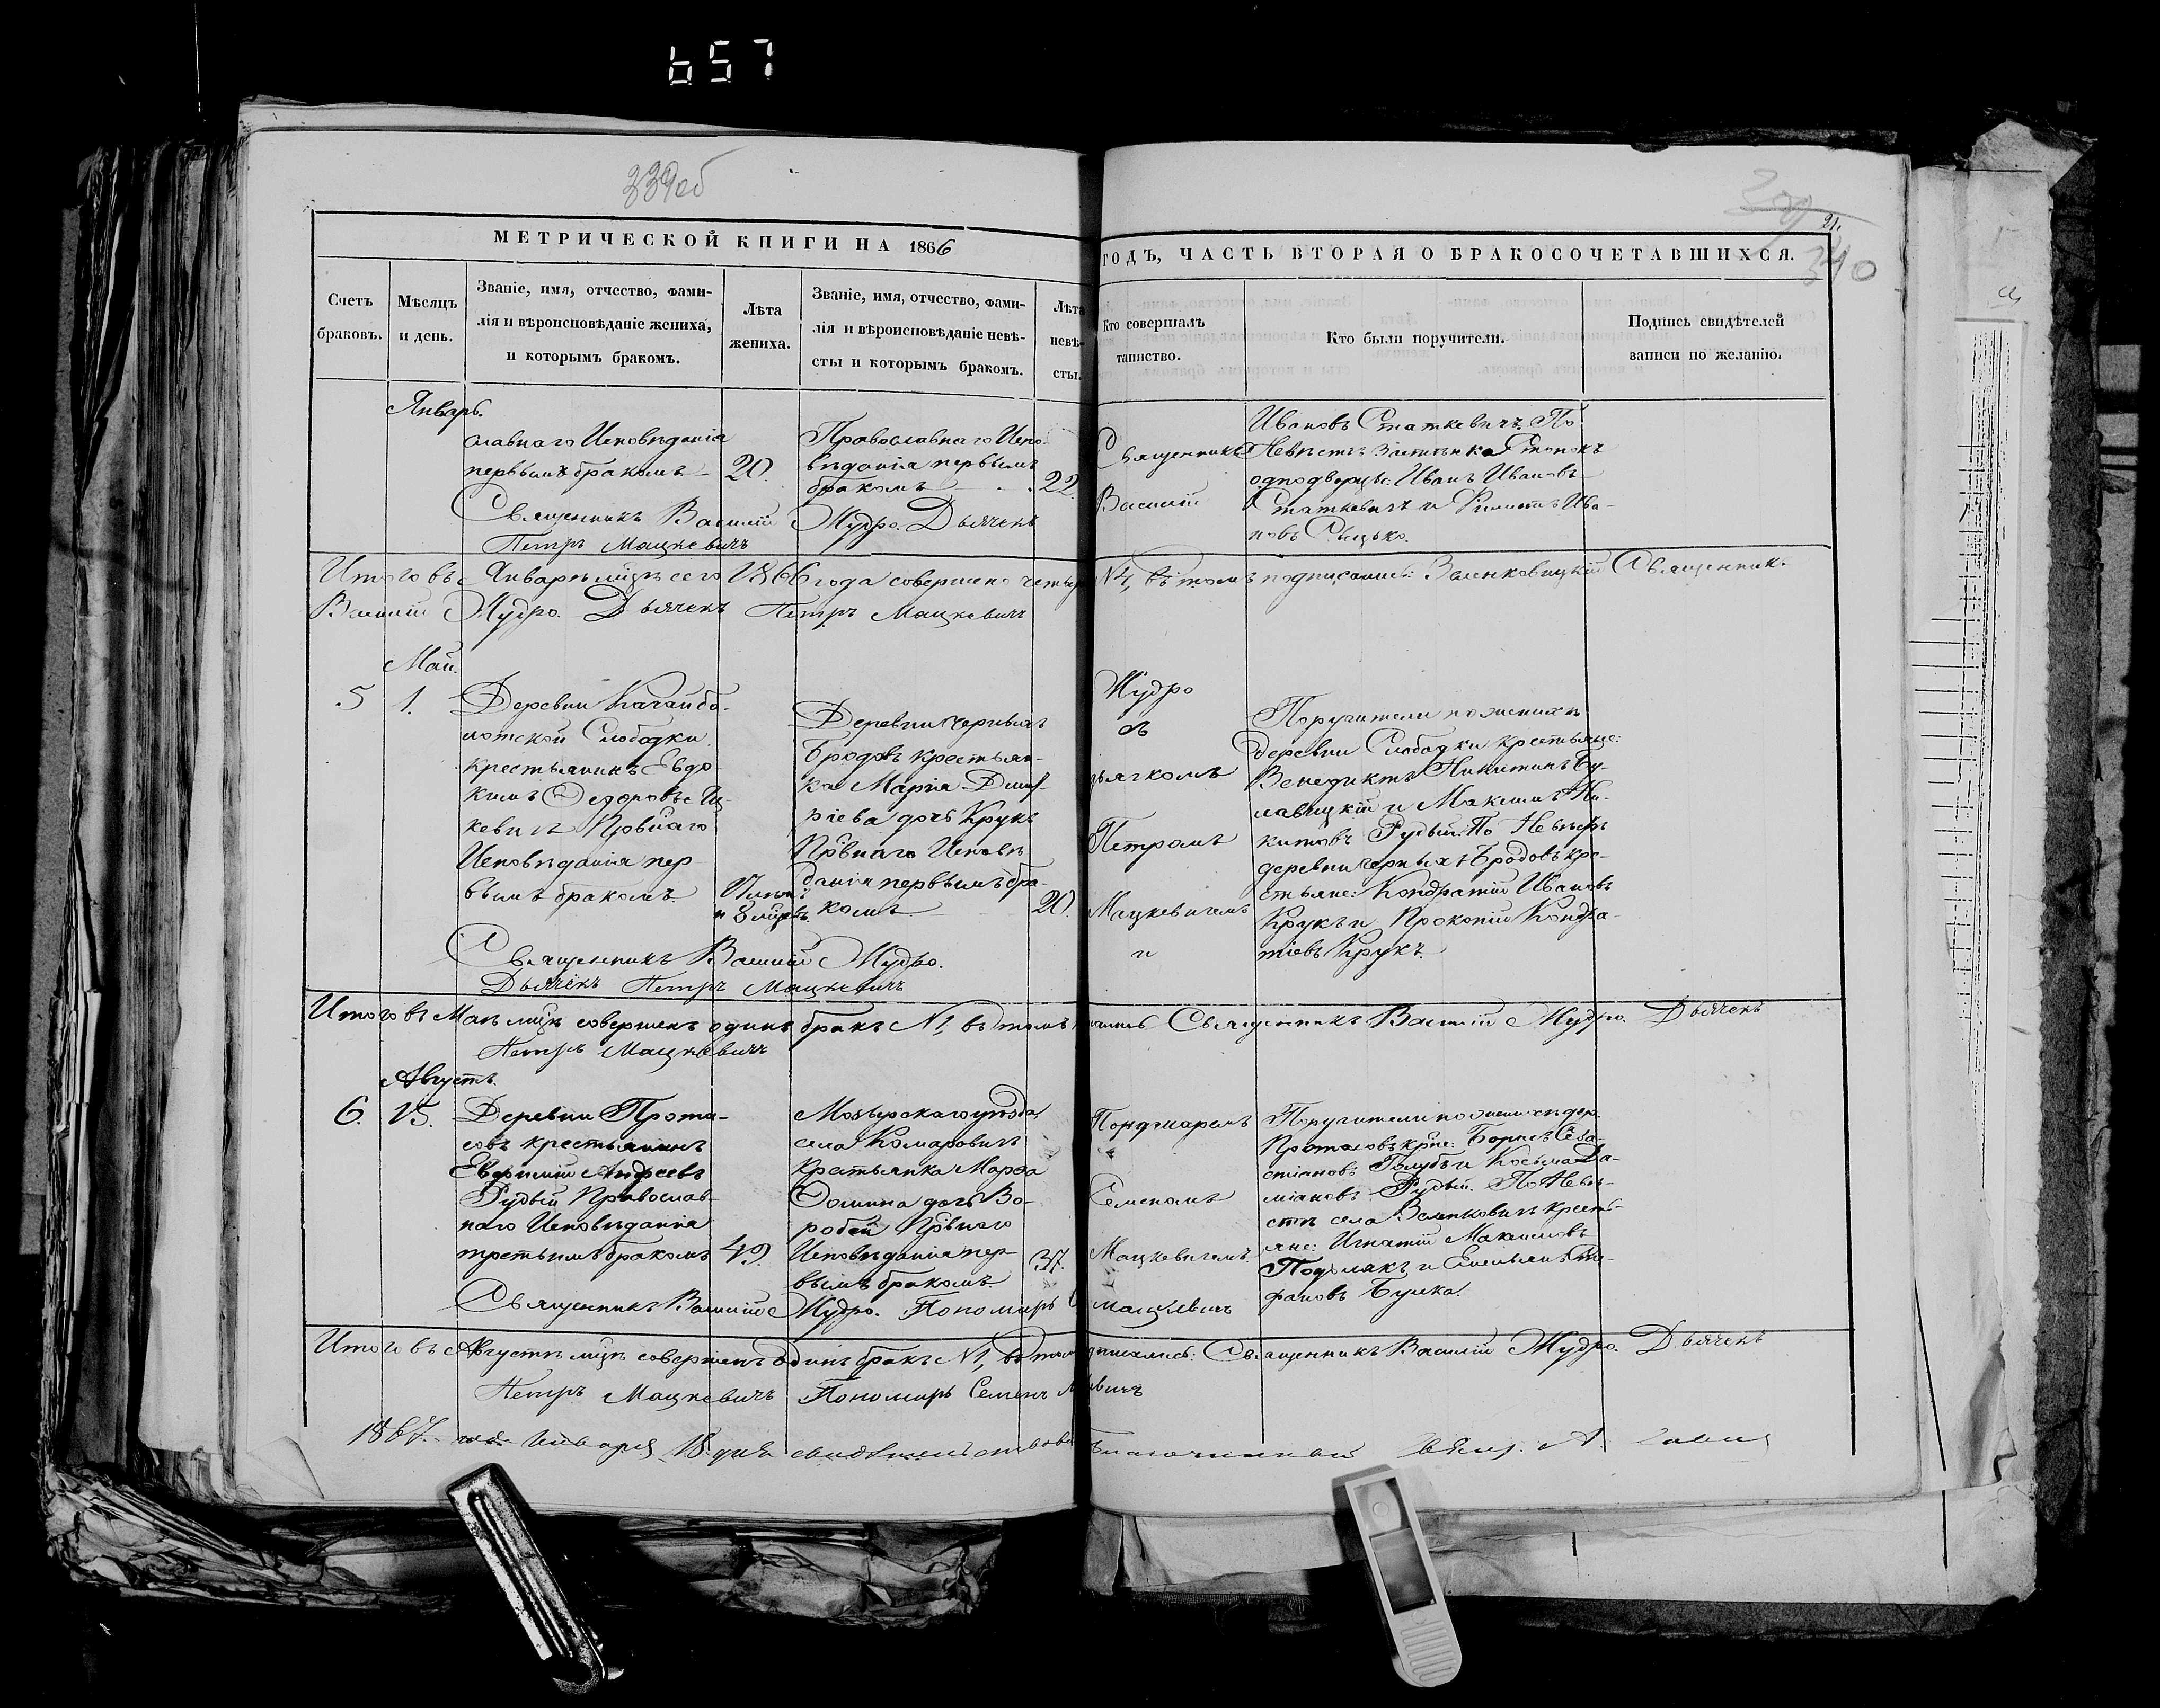 657
339об
340
21.
МЕТРИЧЕСКОЙ КНИГИ НА 1866
ГОДЪ, ЧАСТЬ ВТОРАЯ О БРАКОСОЧЕТАВШИХСЯ.
Счетъ браковъ.
Мѣсяцъ и день.
Званіе, имя, отчество, фами-
лія и вѣроисповѣданіе жениха,
и которымъ бракомъ.
Лѣта
жениха.
Званіе, имя, отчество, фами-
лія и вѣроисповѣданіе невѣ-
сты и которымъ бракомъ.
Лѣта
невѣ-
сты.
Кто совершалъ
таинство.
Кто были поручители.
Подпись свидѣтелей
записи по желанію.
Январь.
славнаго Исповѣданія
первымъ бракомъ
20.
Православнаго Испо-
вѣданія первымъ
бракомъ
22.
Священникъ
Василій
Ивановъ Статкевичъ. По
Невѣстѣ
однодворцы: Иванъ Ивановъ
Статкевичъ и Ива-
новъ Сыцько.
Священникъ Василій Мудро. Дьячекъ
Петръ Мацкевичъ
Итого въ Январѣ мцѣ сего 1866 года совершено четыре
№4, въ томъ подписались: Священник
Василій Мудро. Дьячекъ Петръ Мацкевичъ
Май.
5
1.
Деревни
лотской Слободки
крестьянинъ Евдо-
кимъ Ѳедоровъ Иц-
кевичъ Првнаго
Исповѣданія пер-
вымъ бракомъ
и 8 мцвъ.
Деревни Черныхъ
Бродовъ крестьян-
ка Марія Дмит-
ріева дочь Крукъ
Првнаго Исповѣ
данія первымъ бра-
комъ
20.
Мудро
съ
дьячкомъ
Петромъ
Мацкевичемъ
и
Поручители по женихѣ
деревни Слободки крестьяне:
Венедиктъ Никитинъ Бу-
лавицкій и Максимъ Ни-
китовъ Рудый. По Невѣстѣ
деревни Черныхъ Бродовъ кре-
стьяне: Кондратій Ивановъ
Крукъ и Прокопій Кондра-
тіевъ Крукъ.
Священникъ Василій Мудро.
Дьячекъ Петръ Мацкевичъ
Итого въ Маѣ мцѣ совершенъ одинъ бракъ №1, въ томъ
Священникъ Василій Мудро. Дьячекъ
Петръ Мацкевичъ
Августъ.
6.
15.
Деревни Прота-
совъ крестьянинъ
Евфимій Андреевъ
Рудый Православ-
наго Исповѣданія
третьимъ бракомъ
49.
Мозырскаго уѣзда
села Комаровичъ
Крестьянка Марѳа
Ѳомина дочь Во-
робей Првнаго
Исповѣданія пер-
вымъ бракомъ
37.
Пономаремъ
Семеномъ
Мацкевичемъ.
Поручители по женихѣ дер.
Протасовъ крне: Борисъ Сева-
стіановъ Голубъ и Косьма Да-
міановъ Рудый. По Невѣ-
стѣ села крестья-
яне: Игнатій Максимовъ
и Емельянъ Сте-
фановъ
Священникъ Василій Мудро. Пономарь
Мацкевичъ
Итого въ Августѣ мцѣ совершенъ одинъ бракъ №1, въ томъ
дписались: Священникъ Василій Мудро. Дьячекъ
Петръ Мацкевичъ Пономарь Семенъ
евичъ
1867 года Января 18 дня свидѣтельствовалъ
Благочинный